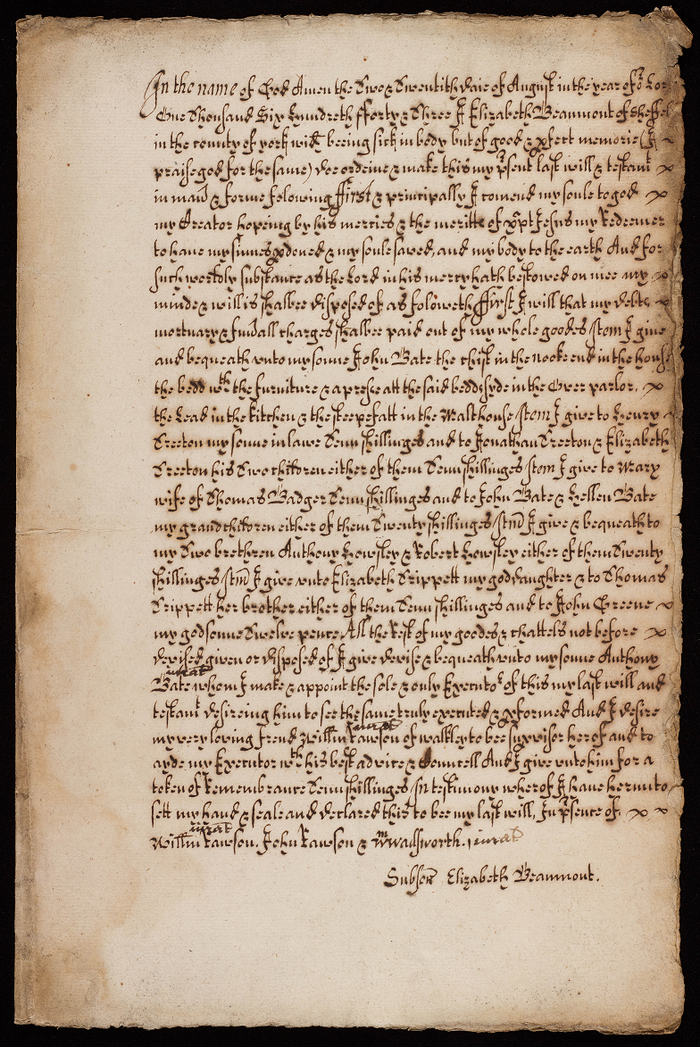 In the name of God Amen the Two & Twentith daie of August in the year of or Lor
One Thousand Six Hundreth fforty & Three I Elizabeth Beaumont of Sheffel
in the county of york wid beeing sick in body but of good & pfect memorie (I
praise god for the same) doe ordeine & make this my psent last will & testamt
in manr & forme folowing ffirst & principally I comend my soule to god
my Creator hopeing by his mercies & the meritts of xpt Jesus my Redeemer
to have my sinnes pdoned & my soule saved, and my body to the earth And for
such worldly substance as the Lord in his mercy hath bestowed on mee my
minde & will is shalbee disposed of as foloweth ffirst I will that my debts
mortuary & funall charges shalbee paid out of my whole goodes Itm I give
and bequeath unto my sonne John Bate the chist in the nooke end in the house
the bedd wth the furniture & a presse att the said bedd syde in the Over parlor.
the Lead in the kitchen & the steepefatt in the Malthouse Itm I give to Henry
Treeton my sonne in lawe Tenn shillinges and to Jonathan Treeton & Elizabeth
Treeton his Two children either of them Tenn shillinges Itm I give to Mary
wife of Thomas Badger Tenn shillinges and to John Bate & Hellen Bate
my grandchildren either of them Twenty shillinges / Itm I give & bequeath to
my Two brethren Anthony Howsley & Robert Howsley either of them Twenty
shillinges / Itm I give unto Elizabeth Trippett my goddaughter & to Thomas
Trippett her brother either of them Tenn shillinges and to John Greene
my godsonne Twelve pence All the Rest of my goodes & chattels not before
devised given or disposed of I give devise & bequeath unto my sonne Anthony
jurat
Bate whom I make & appoint the sole & only Executor of this my last will and
testamt desireing him to see the same truly executed & pformed And I desire
jurat
my very loving frend Willm Rawson of walkley to bee supvisor herof and to
ayde my Executor wth his best advice & Councell And I give unto him for a
token of Remembrance Tenn shillinges In testimony wherof I have herunto
sett my hand & seale and declared this to bee my last will, In psence of
jurat
Willm Rawson. John Rawson & Wm Wadsworth. jurat
Subscr Elizabeth Beaumont.